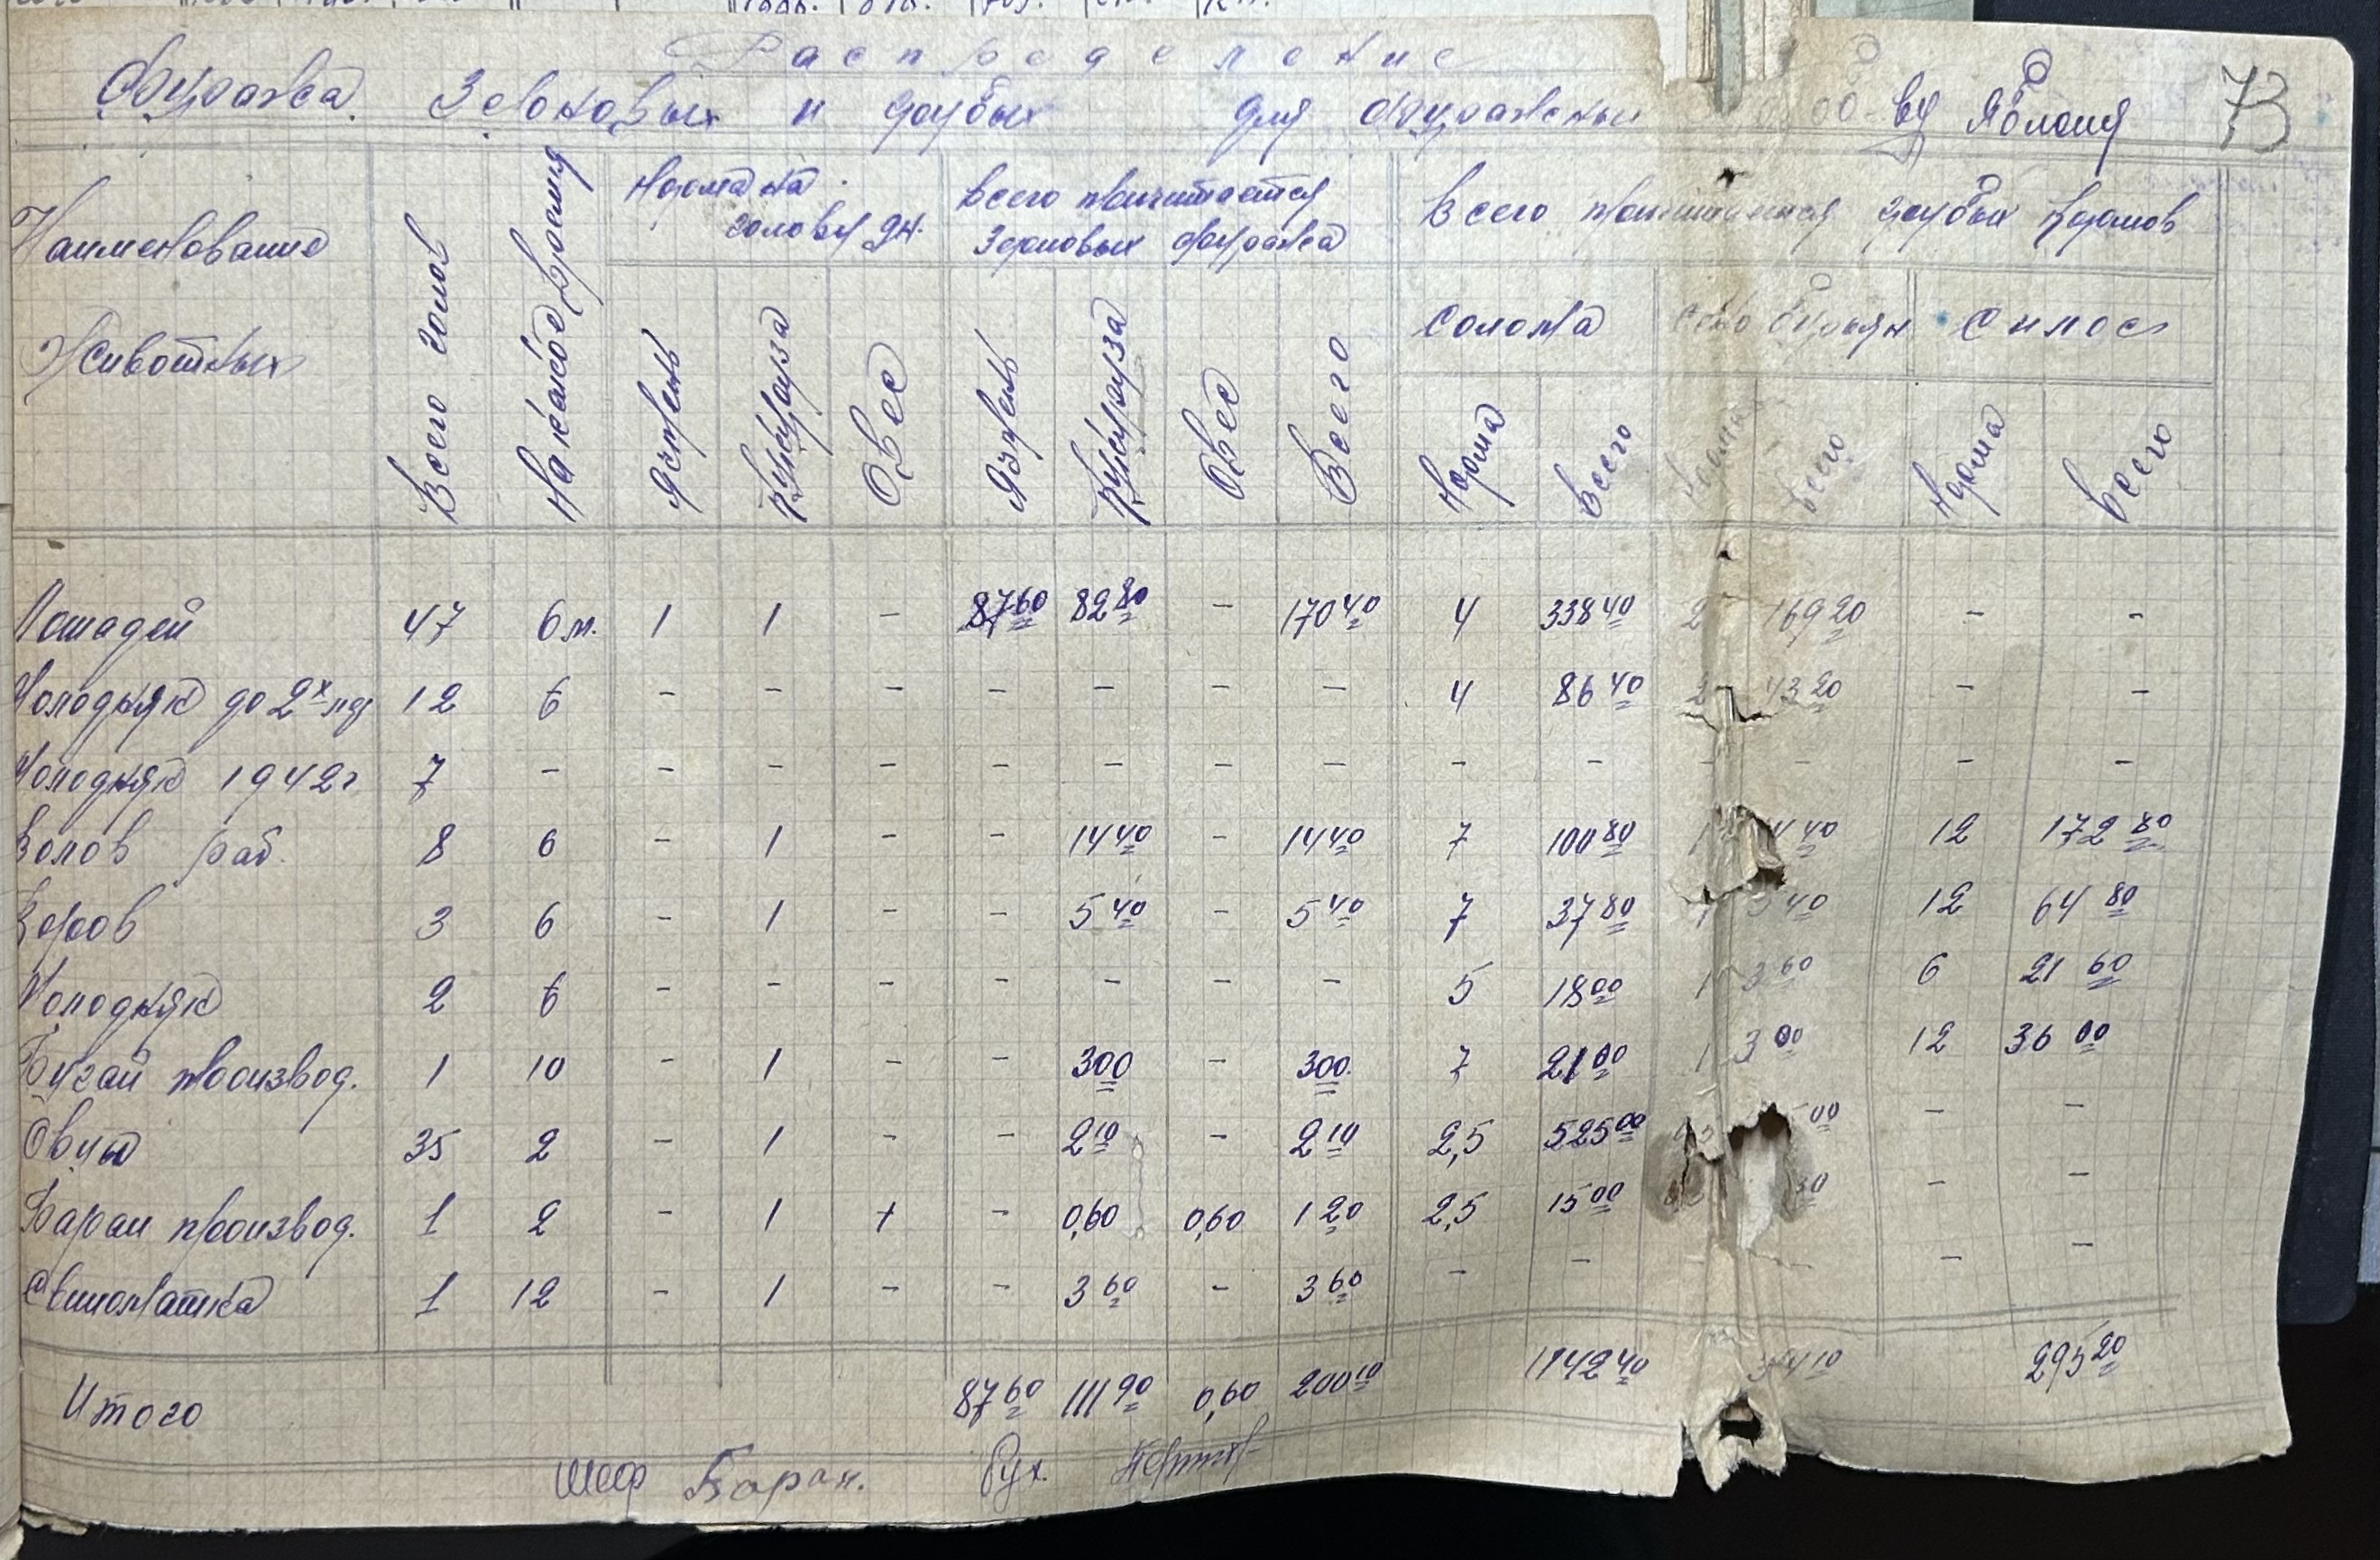 Распределение
Фуража Зерновых и грубых для фуражны об-ву Яблоня 73
Наименование Животных | Всего голов | На какаюе Время | Норма на голову дн. | Всего причитается Зерновых фуража | Всего причитается грубых кормов
солома | сено бурьян | силос
Ячмень | Кукуруза | Овес | Ячмень | Кукуруза | Овес | Всего | Норма | Всего | Норма | Всего | Норма | Всего
Лошадей 47 6 м. 1 1 - 87 60 82 80 - 170 40 4 338 40 2 169 20 - -
Молодняк до 2х лд 12 6 - - - - - - - 4 86 40 2 43 20 - -
Молодняк 1942г 7 - - - - - - - - - - - - - -
Волов раб. 8 6 - 1 - - 14 40 - 14 40 7 100 80 1 40 12 172 80
Коров 3 6 - 1 - - 5 40 - 5 40 7 37 80 1 5 40 12 64 80
Молодняк 2 6 - - - - - - - 5 18 00 1 3 60 6 21 60
Бугай производ. 1 10 - 1 - - 300 - 300 7 21 00 1 3 00 12 36 00
Овцы 35 2 - 1 - - 2 10 - 2 10 2,5 525 00 00 - -
Баран производ. 1 2 - 1 + - 0,60 0,60 1 20 2,5 15 00 30 - -
Свиноматка 1 12 - 1 - - 3 60 - 3 60 - - - - -
Итого 87 60 111 90 0,60 200 10 1142 40 10 295 20
Шеф Баран. Бух.